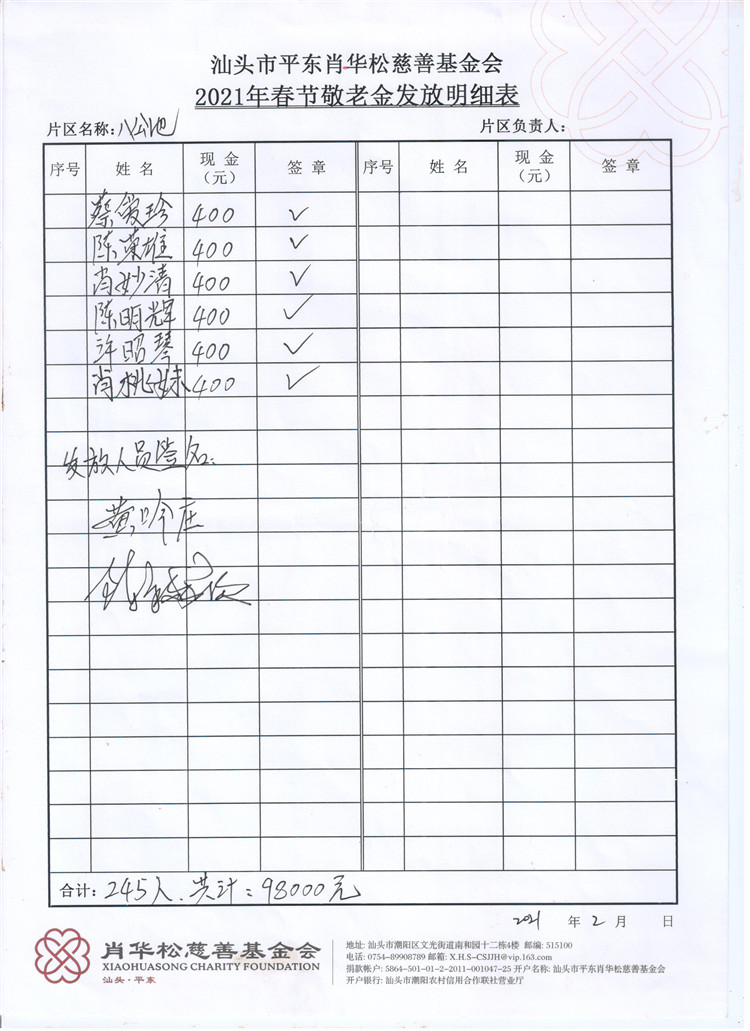 汕头市平东肖华松慈善基金会
2021年春节敬老金发放明细表
片区名称:八公地 片区负责人:
序号 姓名 现金(元) 签章 序号 姓名 现金(元) 签章
蔡俊珍 400 ✓
陈荣雄 400 ✓
肖妙清 400 ✓
陈明辉 400 ✓
许昭琴 400 ✓
肖桃妹 400 ✓
发放人员签名:
黄吟庄
合计:245人、共计:98000元
2021年2月 日
肖华松慈善基金会
XIAOHUASONG CHARITY FOUNDATION
汕头·平东
地址: 汕头市潮阳区文光街道南和园十二栋4楼 邮编: 515100
电话: 0754-89908789 邮箱: X.H.S-CSJJH@vip.163.com
捐款帐户: 5864-501-01-2-2011-001047-25 开户名称: 汕头市平东肖华松慈善基金会
开户银行: 汕头市潮阳农村信用合作联社营业厅